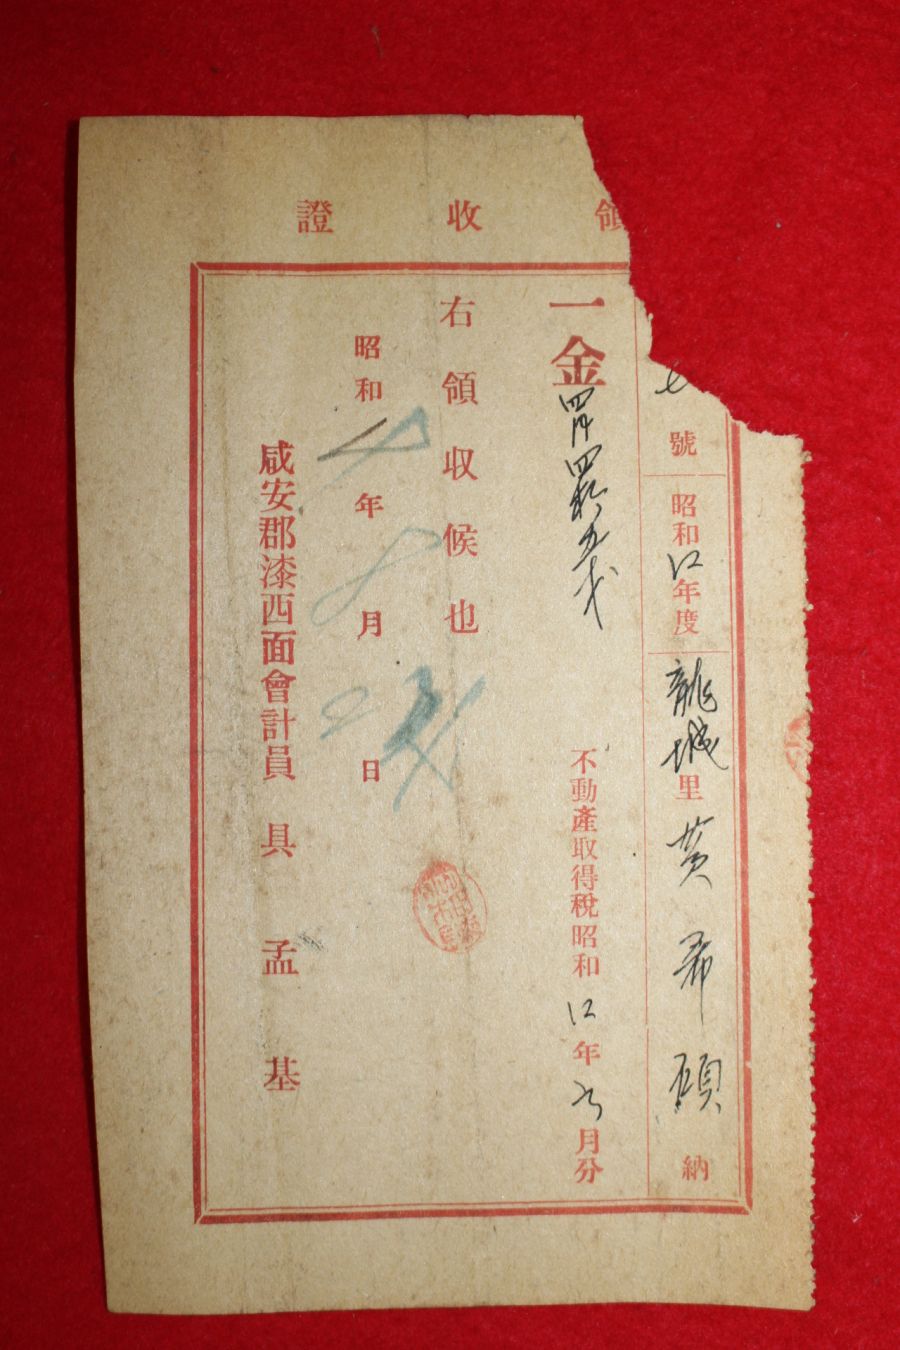 領收證
七號 昭和12年度 龍城里 黃 希 碩 納
一金四円四拾五戋
不動產取得稅昭和12年六月分
右領收候也
昭和 年 8月 日
咸安郡漆西面會計員 具 孟 基